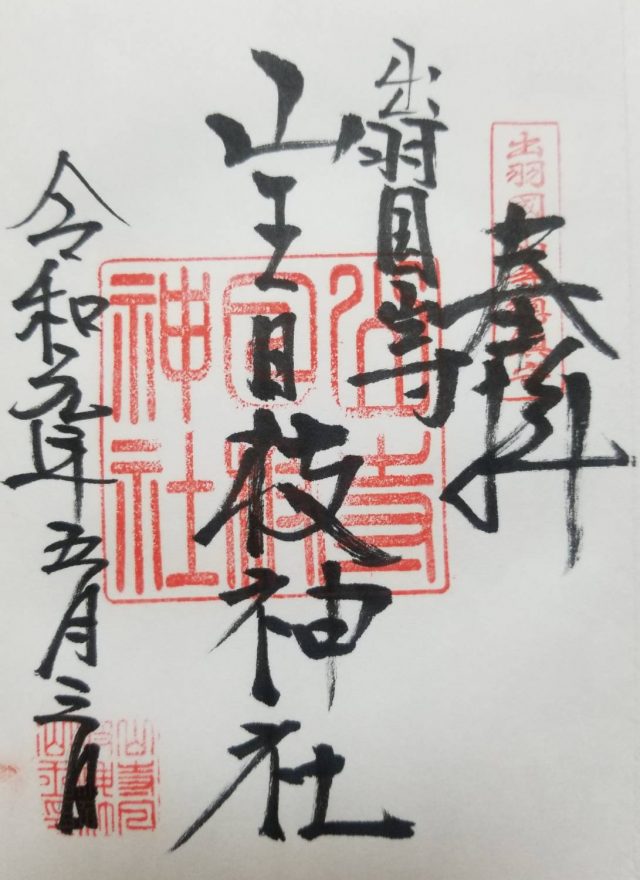 奉拝
出羽国
出羽国山寺
山王日枝神社
山寺
日枝
神社
令和元年五月三日